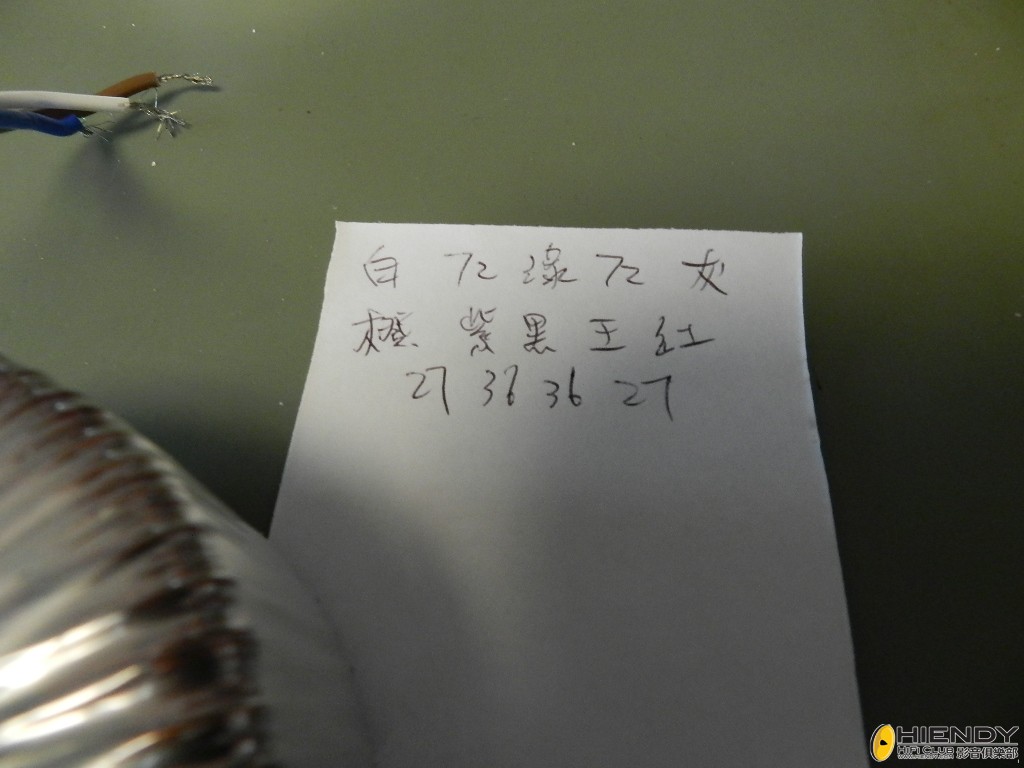 白 72 綠 72 灰
橙 紫 黑 王 紅
27 36 36 27
HIENDY
HIFI CLUB 影音俱樂部